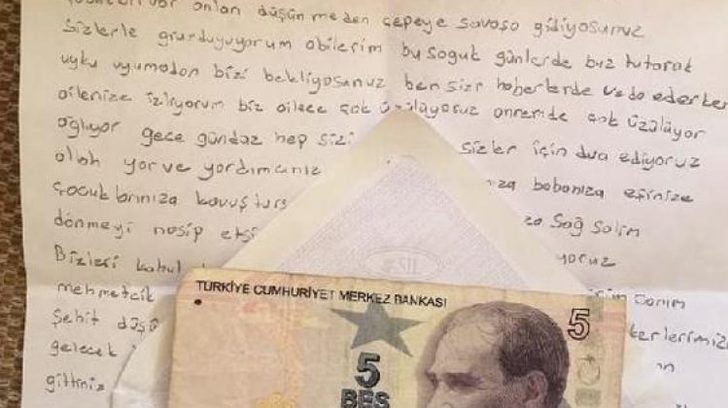 onları düşünmeden cepeye savaşa gidiyosunuz
sizlerle grurduyuyorum abilerim bu soguk günlerde bız tutarak
uyku uyumadan bizi bekliyosunuz ben sizi haberlerde veda ederken
ailenize izliyorum biz ailece çok üzülüyoruz annemide çok üzülüyor
ağlıyor gece gündüz hep sizi sizler için dua ediyoruz
olah yar ve yardımcınız babanıza eşinize
çocuklarınıza kavuşturs Sağ Salim
dönmeyi nasip etsi yoruz
Bizleri kabul canım
mehmetcik kerlerimiz
Şehit düşü
gelecek
gittiniz
TÜRKİYE CUMHURİYET MERKEZ BANKASI
5
5
BEŞ